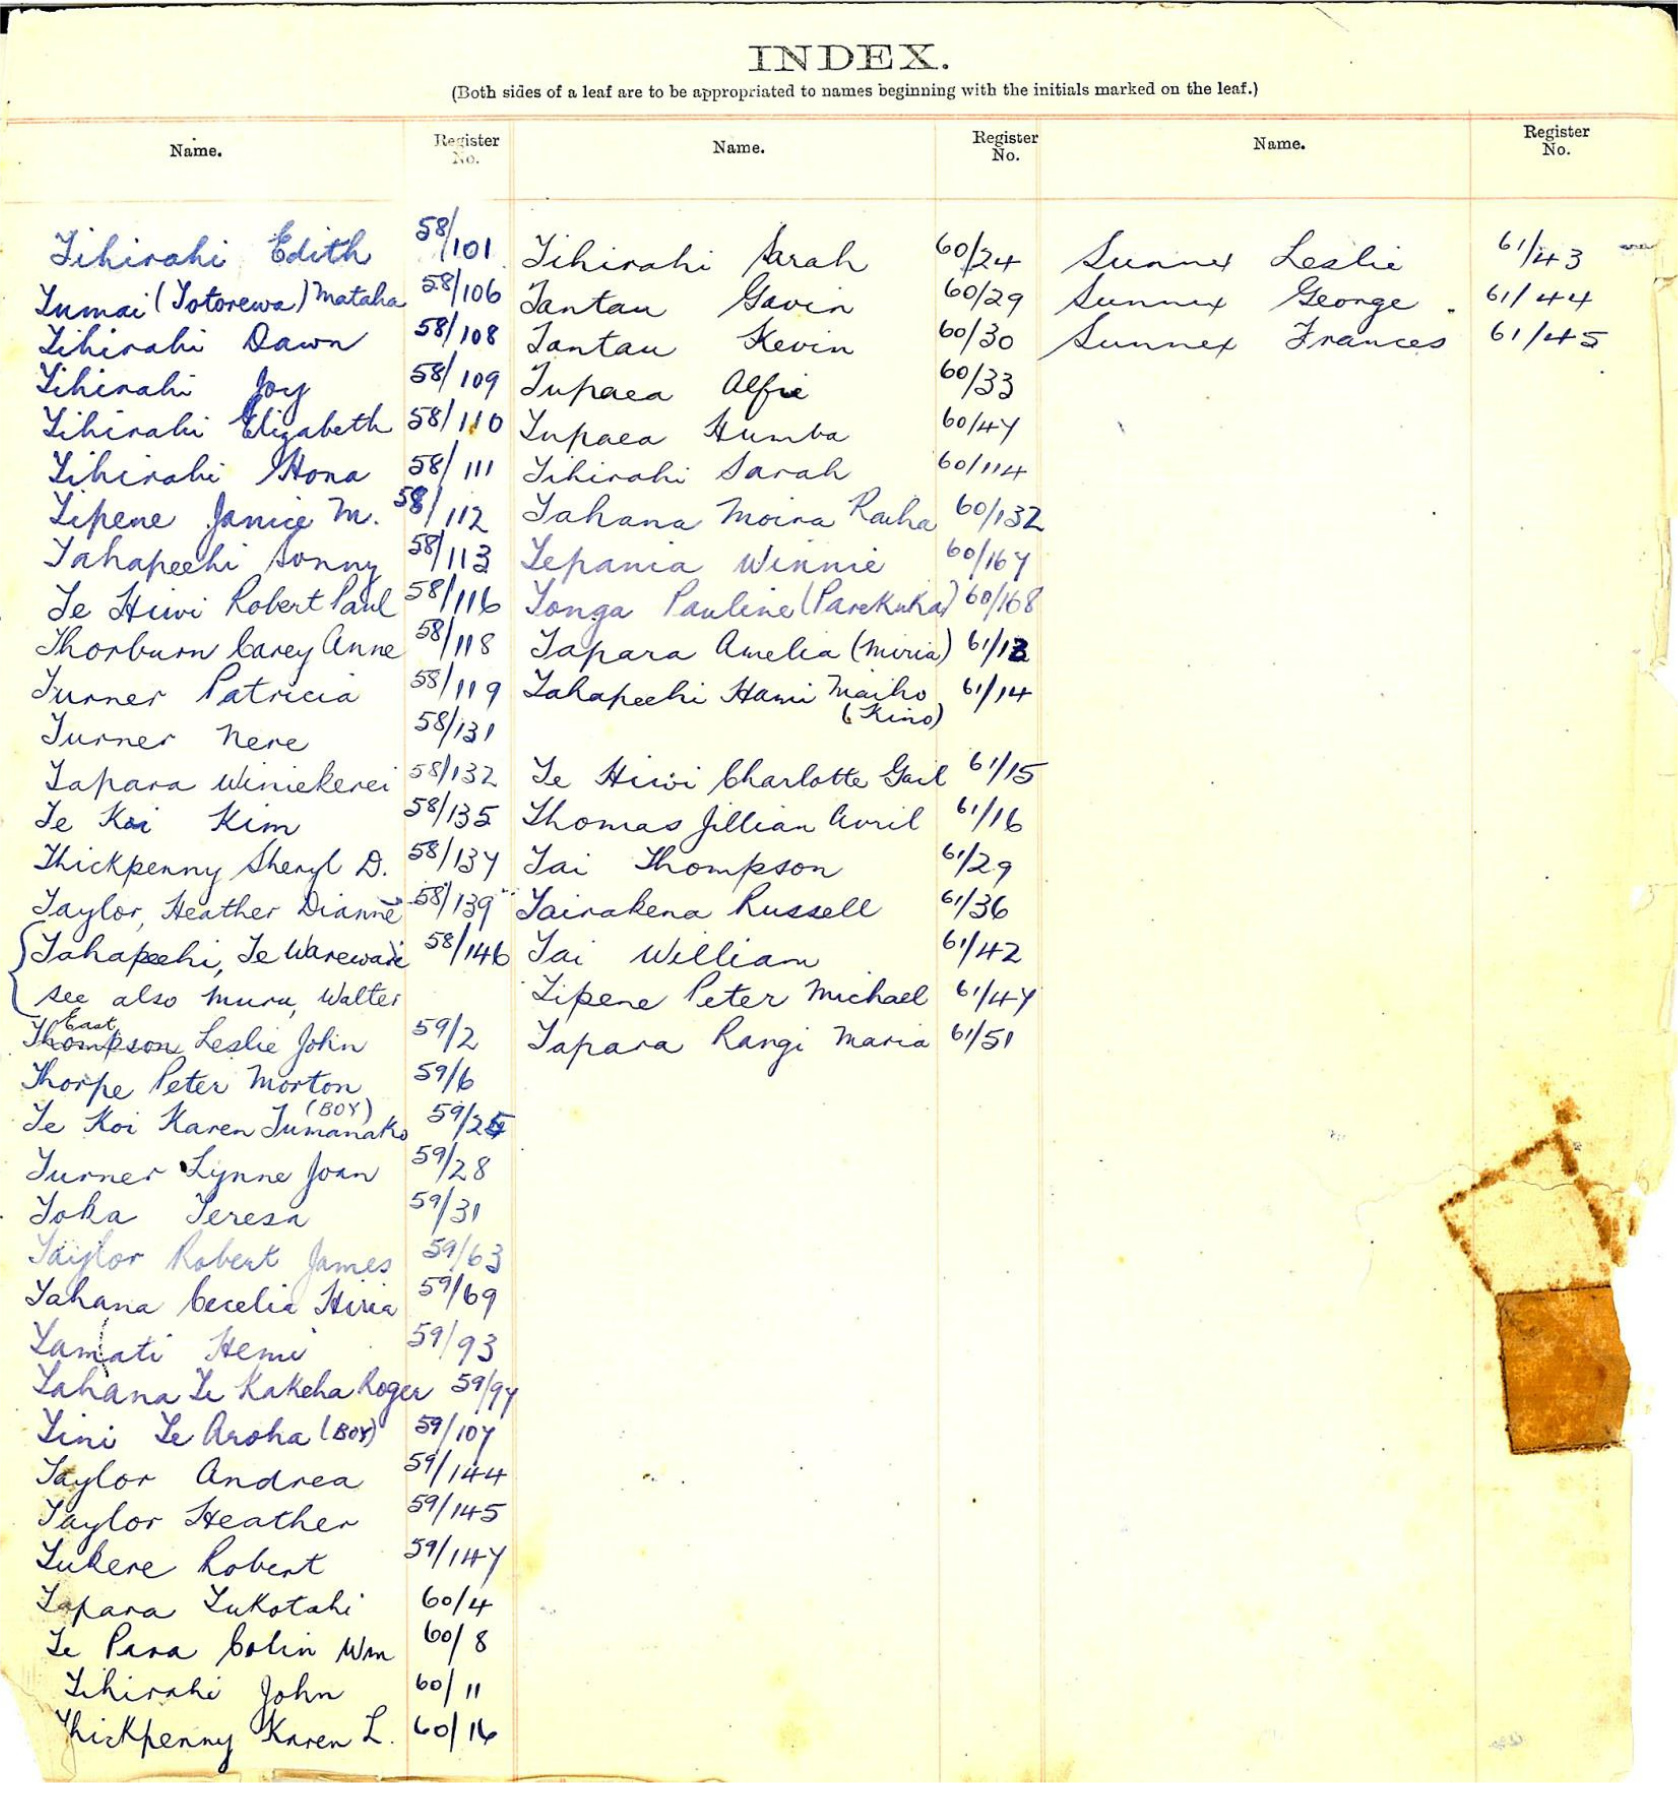 INDEX.
(Both sides of a leaf are to be appropriated to names beginning with the initials marked on the leaf.)
Name. Register No. Name. Register No. Name. Register No.
Tihirahi Edith 58/101
Tumai (Totorewa) Mataha 58/106
Tihirahi Dawn 58/108
Tihirahi Joy 58/109
Tihirahi Elizabeth 58/110
Tihirahi Hona 58/111
Tipene Janice M. 58/112
Tahapeehi Sonny 58/113
Te Hiwi Robert Paul 58/116
Thorburn Carey Anne 58/118
Turner Patricia 58/119
Turner Nere 58/131
Tapara Winiekerei 58/132
Te Koi Kim 58/135
Thickpenny Sheryl D. 58/137
Taylor, Heather Dianne 58/139
Tahapeehi, Te Warewari 58/146
see also Muru, Walter
East
Thompson Leslie John 59/2
Thorpe Peter Morton 59/6
(BOY)
Te Koi Karen Tumanako 59/25
Turner Lynne Joan 59/28
Toka Teresa 59/31
Taylor Robert James 59/63
Tahana Cecelia Hiria 59/69
Tamati Hemi 59/93
Tahana Te Kakeha Roger 59/97
Tini Te Aroha (BOY) 59/107
Taylor Andrea 59/144
Taylor Heather 59/145
Tukere Robert 59/147
Tapara Tukotahi 60/4
Te Para Colin Wm 60/8
Tihirahi John 60/11
Thickpenny Karen L. 60/16
Tihirahi Sarah 60/24
Tantau Gavin 60/29
Tantau Kevin 60/30
Tupaea Alfie 60/33
Tupaea Humba 60/47
Tihirahi Sarah 60/114
Tahana Moira Raiha 60/132
Tepania Winnie 60/167
Tonga Pauline (Parekuka) 60/168
Tapara Amelia (Miria) 61/13
Tahapeehi Hami Maiho 61/14
(Kino)
Te Hiwi Charlotte Gail 61/15
Thomas Jillian Avril 61/16
Tai Thompson 61/29
Tairakena Russell 61/36
Tai William 61/42
Tipene Peter Michael 61/47
Tapara Rangi Maria 61/51
Sunnex Leslie 61/43
Sunnex George 61/44
Sunnex Frances 61/45